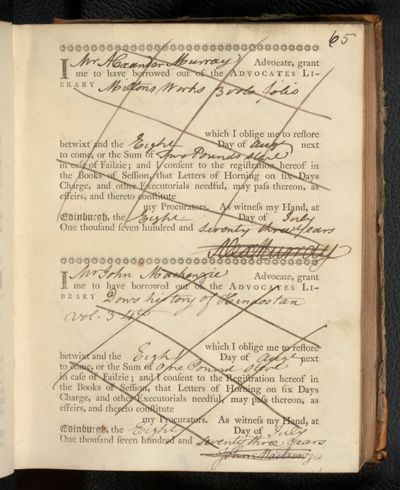 65
I Mr Alexander Murray Advocate, grant
me to have borrowed out of the ADVOCATES LI-
BRARY Miltons Works 3 vols folio
which I oblige me to reſtore
betwixt and the Eight Day of augt next
to come, or the Sum of two Pounds sterl
in caſe of Failzie; and I conſent to the regiſtration hereof in
the Books of Seſſion, that Letters of Horning on ſix Days
Charge, and other Executorials needful, may paſs thereon, as
effeirs, and thereto conſtitute
my Procurators. As witneſs my Hand, at
Edinburgh, the Eight Day of July
One thouſand ſeven hundred and seventy three years
Alexr Murray
I Mr John Mackenzie Advocate, grant
me to have borrowed out of the ADVOCATES LI-
BRARY Dows history of Hindostan
vol. 3 4to
which I oblige me to reſtore
betwixt and the Eight Day of augt next
to come, or the Sum of one Pound sterl
in caſe of Failzie; and I conſent to the Regiſtration hereof in
the Books of Seſſion, that Letters of Horning on ſix Days
Charge, and other Executorials needful, may paſs thereon, as
effeirs, and thereto conſtitute
my Procurators. As witneſs my Hand, at
Edinburgh, the Eight Day of July
One thouſand ſeven hundred and seventy three years
John